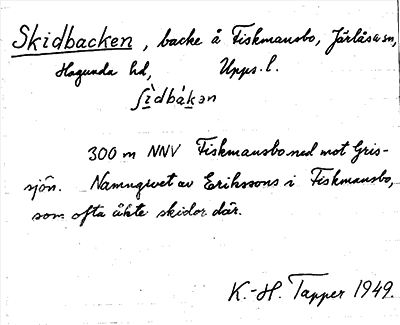 Skidbacken, backe å Fiskmansbo, Järlåsa sn,
Hagunda hd, Upps. l.
ʃìdbák̲ən
300 m NNV Fiskmansbo ned mot Gris-
sjön. Namngivet av Erikssons i Fiskmansbo,
som ofta åkte skidor där.
K.-H. Tapper 1949.